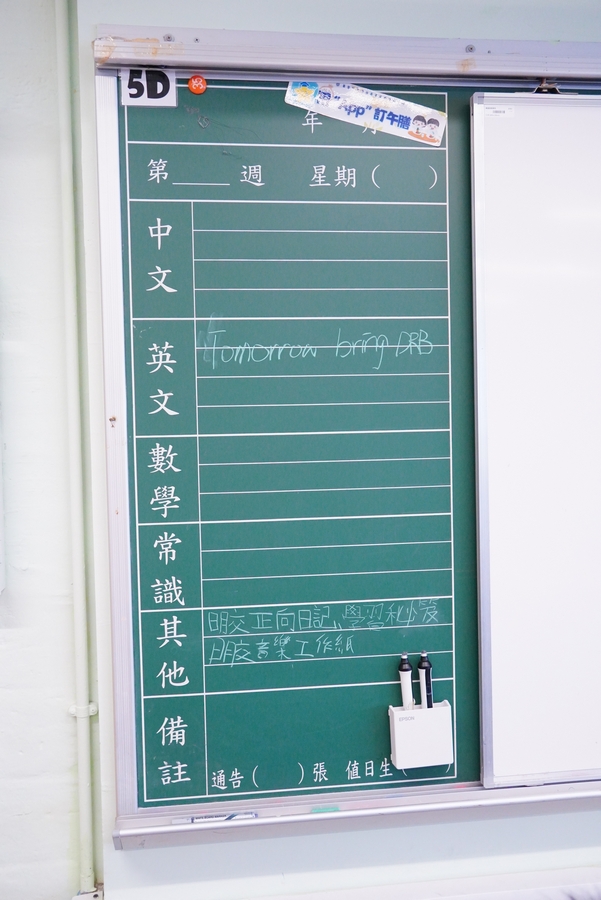 5D
"App"訂午膳
年 月
第____週 星期( )
中文
英文
Tomorrow bring DRB
數學
常識
其他
明交正向日記、學習秘笈
明交音樂工作紙
備註
通告( )張 值日生( )
EPSON